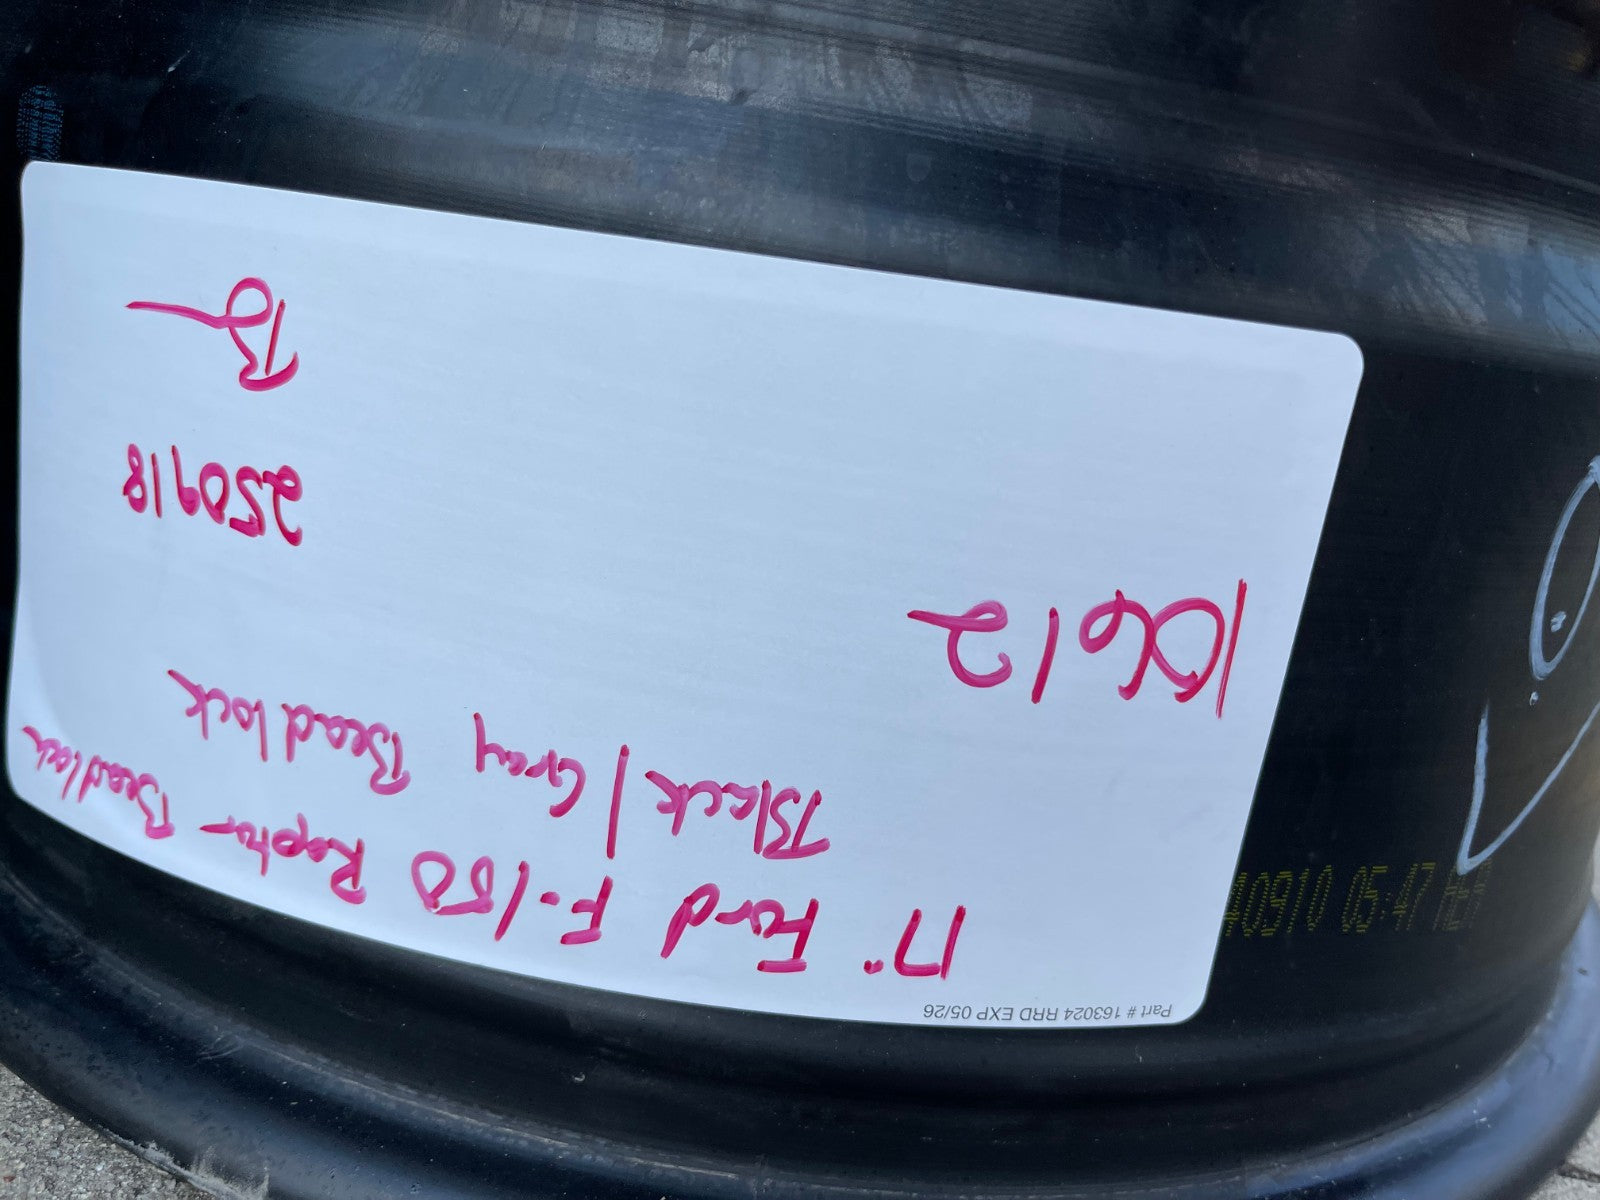 Part # 163024 RRD EXP 05/26
17" Ford F-150 Raptor Beadlock
Black / Gray Beadlock
10612
250918
B
40910 05:47